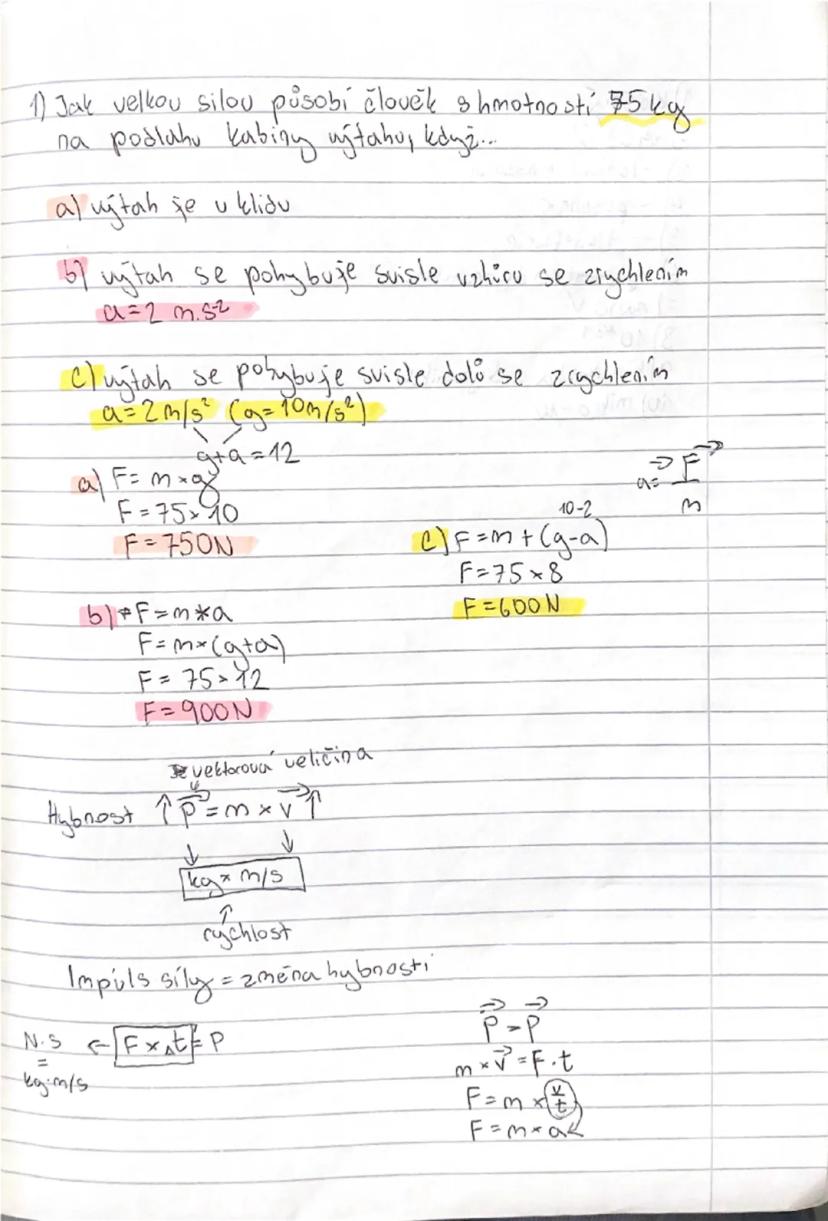 1) Jak velkou silou působí člověk s hmotností 75 kg
na podlahu kabiny výtahu, když...
a) výtah je v klidu
b) výtah se pohybuje svisle vzhůru se zrychlením
a=2 m.s-2
c) výtah se pohybuje svisle dolů se zrychlením
a=2m/s² (g=10m/s²)
g+a=12
a) F=m×g
F=75×10
F=750N
b) F=m*a
F=m×(g+a)
F=75×12
F=900N
a=F/m
10-2
c) F=m+(g-a)
F=75×8
F=600N
vektorová veličina
Hybnost ↑p=m×v↑
kg×m/s
↑
rychlost
Impuls síly = změna hybnosti
N.s ← F×Δt = P
=
kg.m/s
P=P
m×v=F.t
F=m×v/t
F=m×a